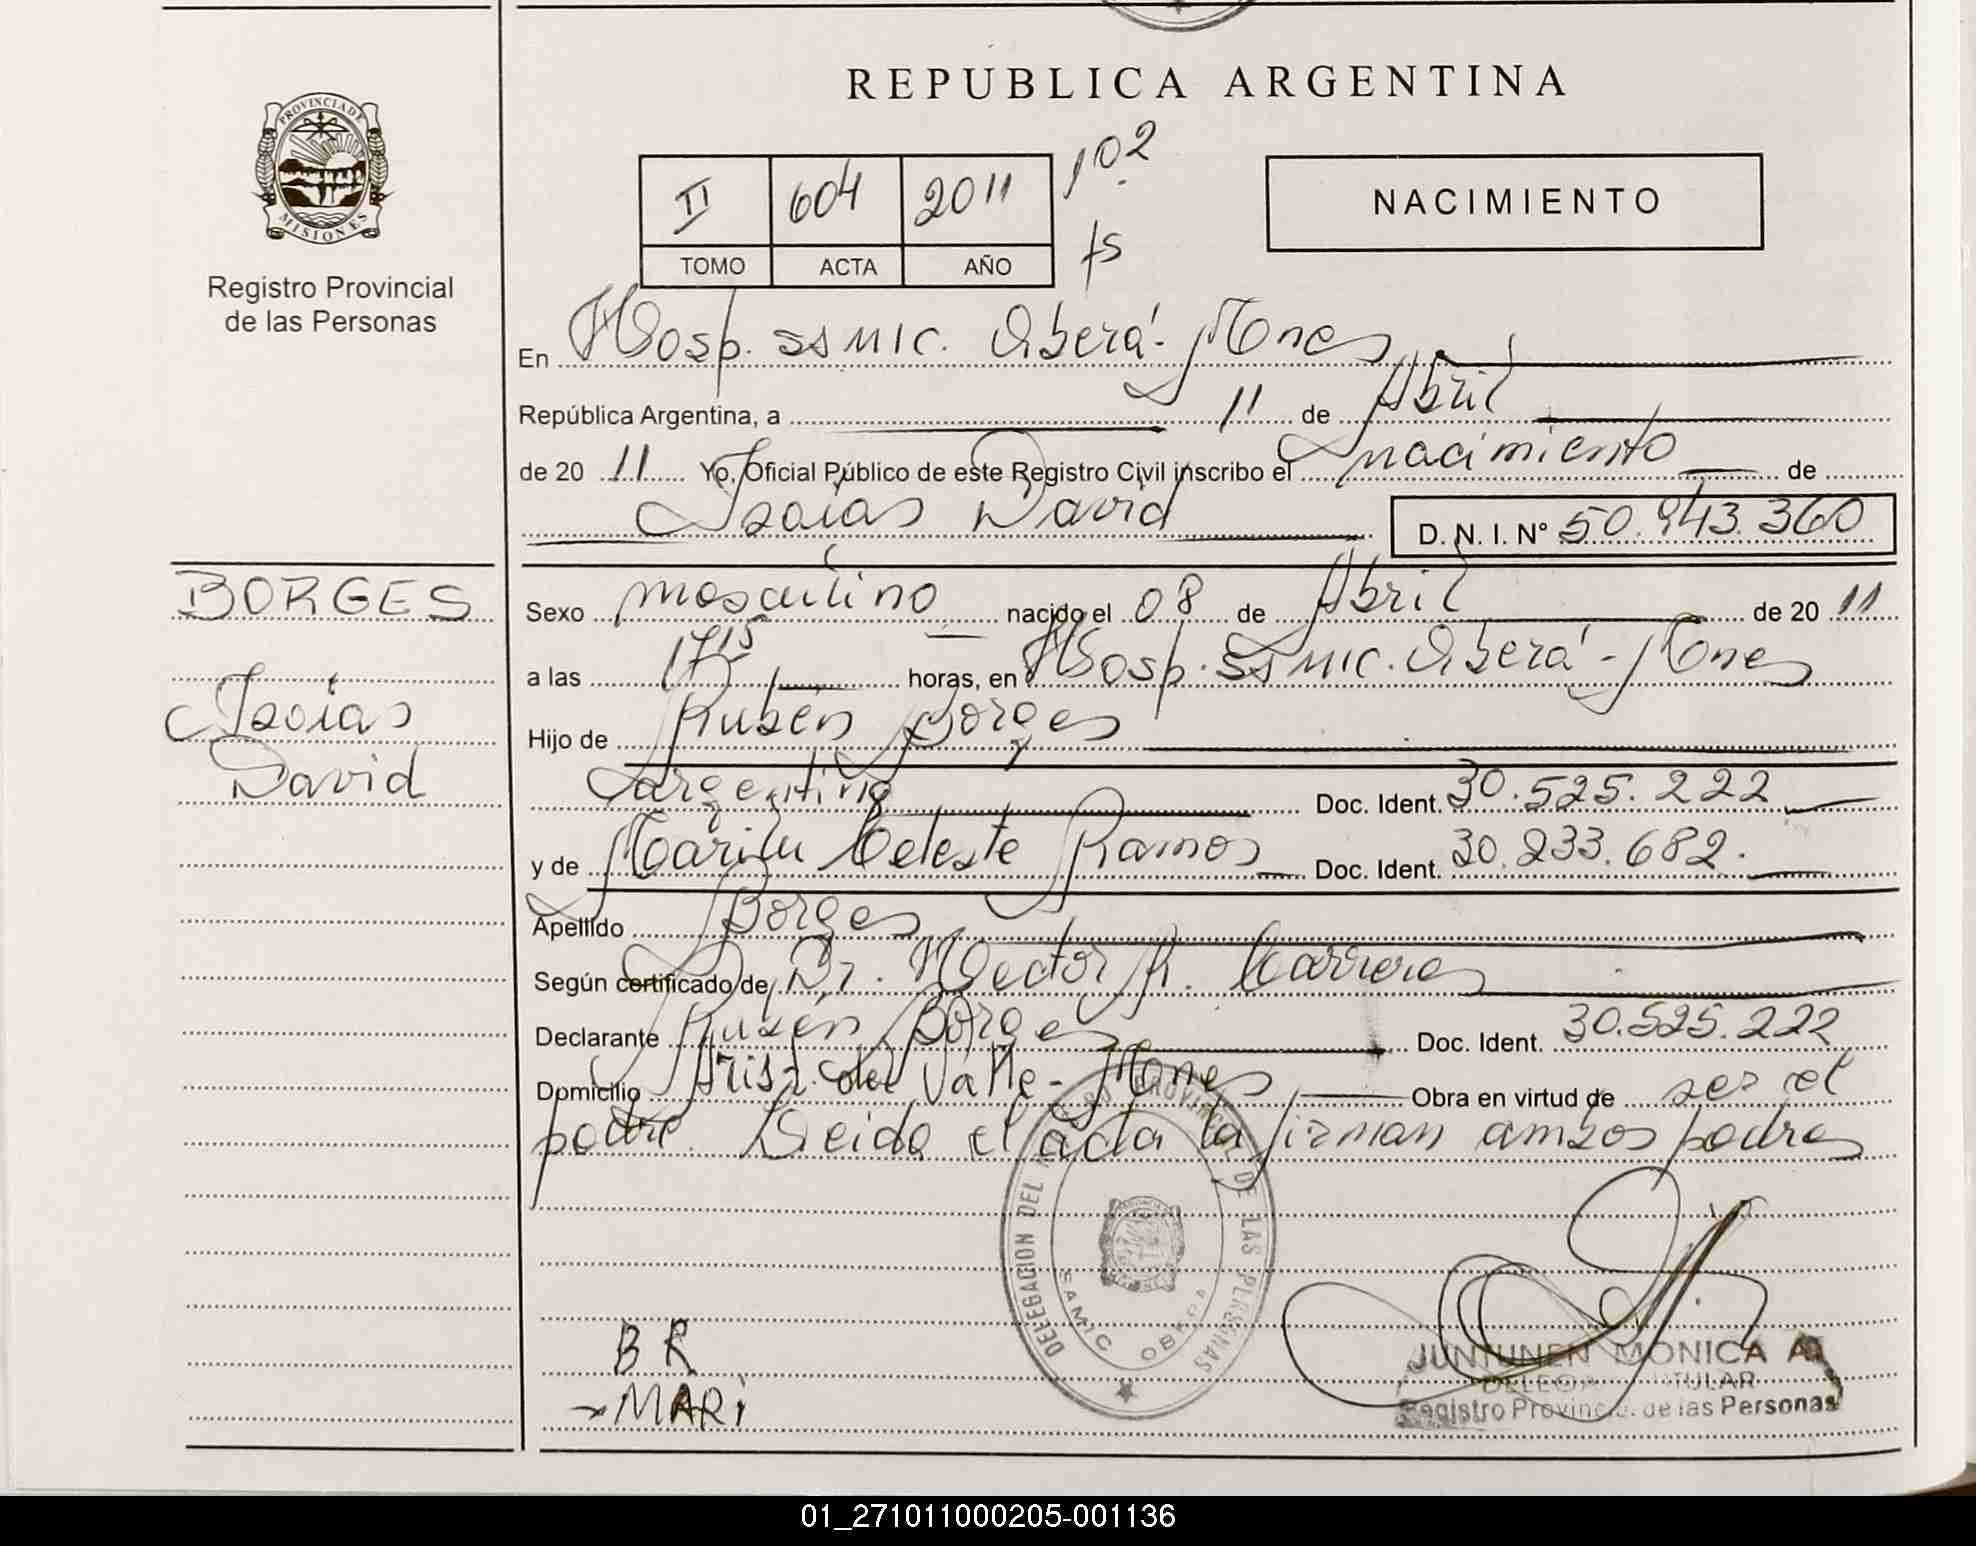 REPUBLICA ARGENTINA
PROVINCIA DE MISIONES
Registro Provincial
de las Personas
II 604 2011 102
TOMO ACTA AÑO fs
NACIMIENTO
En Hosp. SSMIC. Oberá - Mnes
República Argentina, a 11 de Abril
de 2011 Yo, Oficial Público de este Registro Civil inscribo el nacimiento de
Isaías David D. N. I. N° 50.943.360
BORGES
Isaías
David
Sexo masculino nacido el 08 de Abril de 2011
a las 1715 horas, en Hosp. SSMIC. Oberá - Mnes
Hijo de Rubén Borges
argentino Doc. Ident. 30.525.222
y de Celeste Ramos Doc. Ident. 30.233.682.
Apellido Borges
Según certificado de Dr. Hector R. Carrera
Declarante Rubén Borges Doc. Ident. 30.525.222
Domicilio Arist. del Valle - Mnes Obra en virtud de ser el
padre. Leída el acta la firman ambos padres
DELEGACION DEL REGISTRO PROVINCIAL DE LAS PERSONAS
SAMIC OBERA
BR
MARi
JUNTUNEN MONICA A.
DELEGADA TITULAR
Registro Provincial de las Personas
01_271011000205-001136